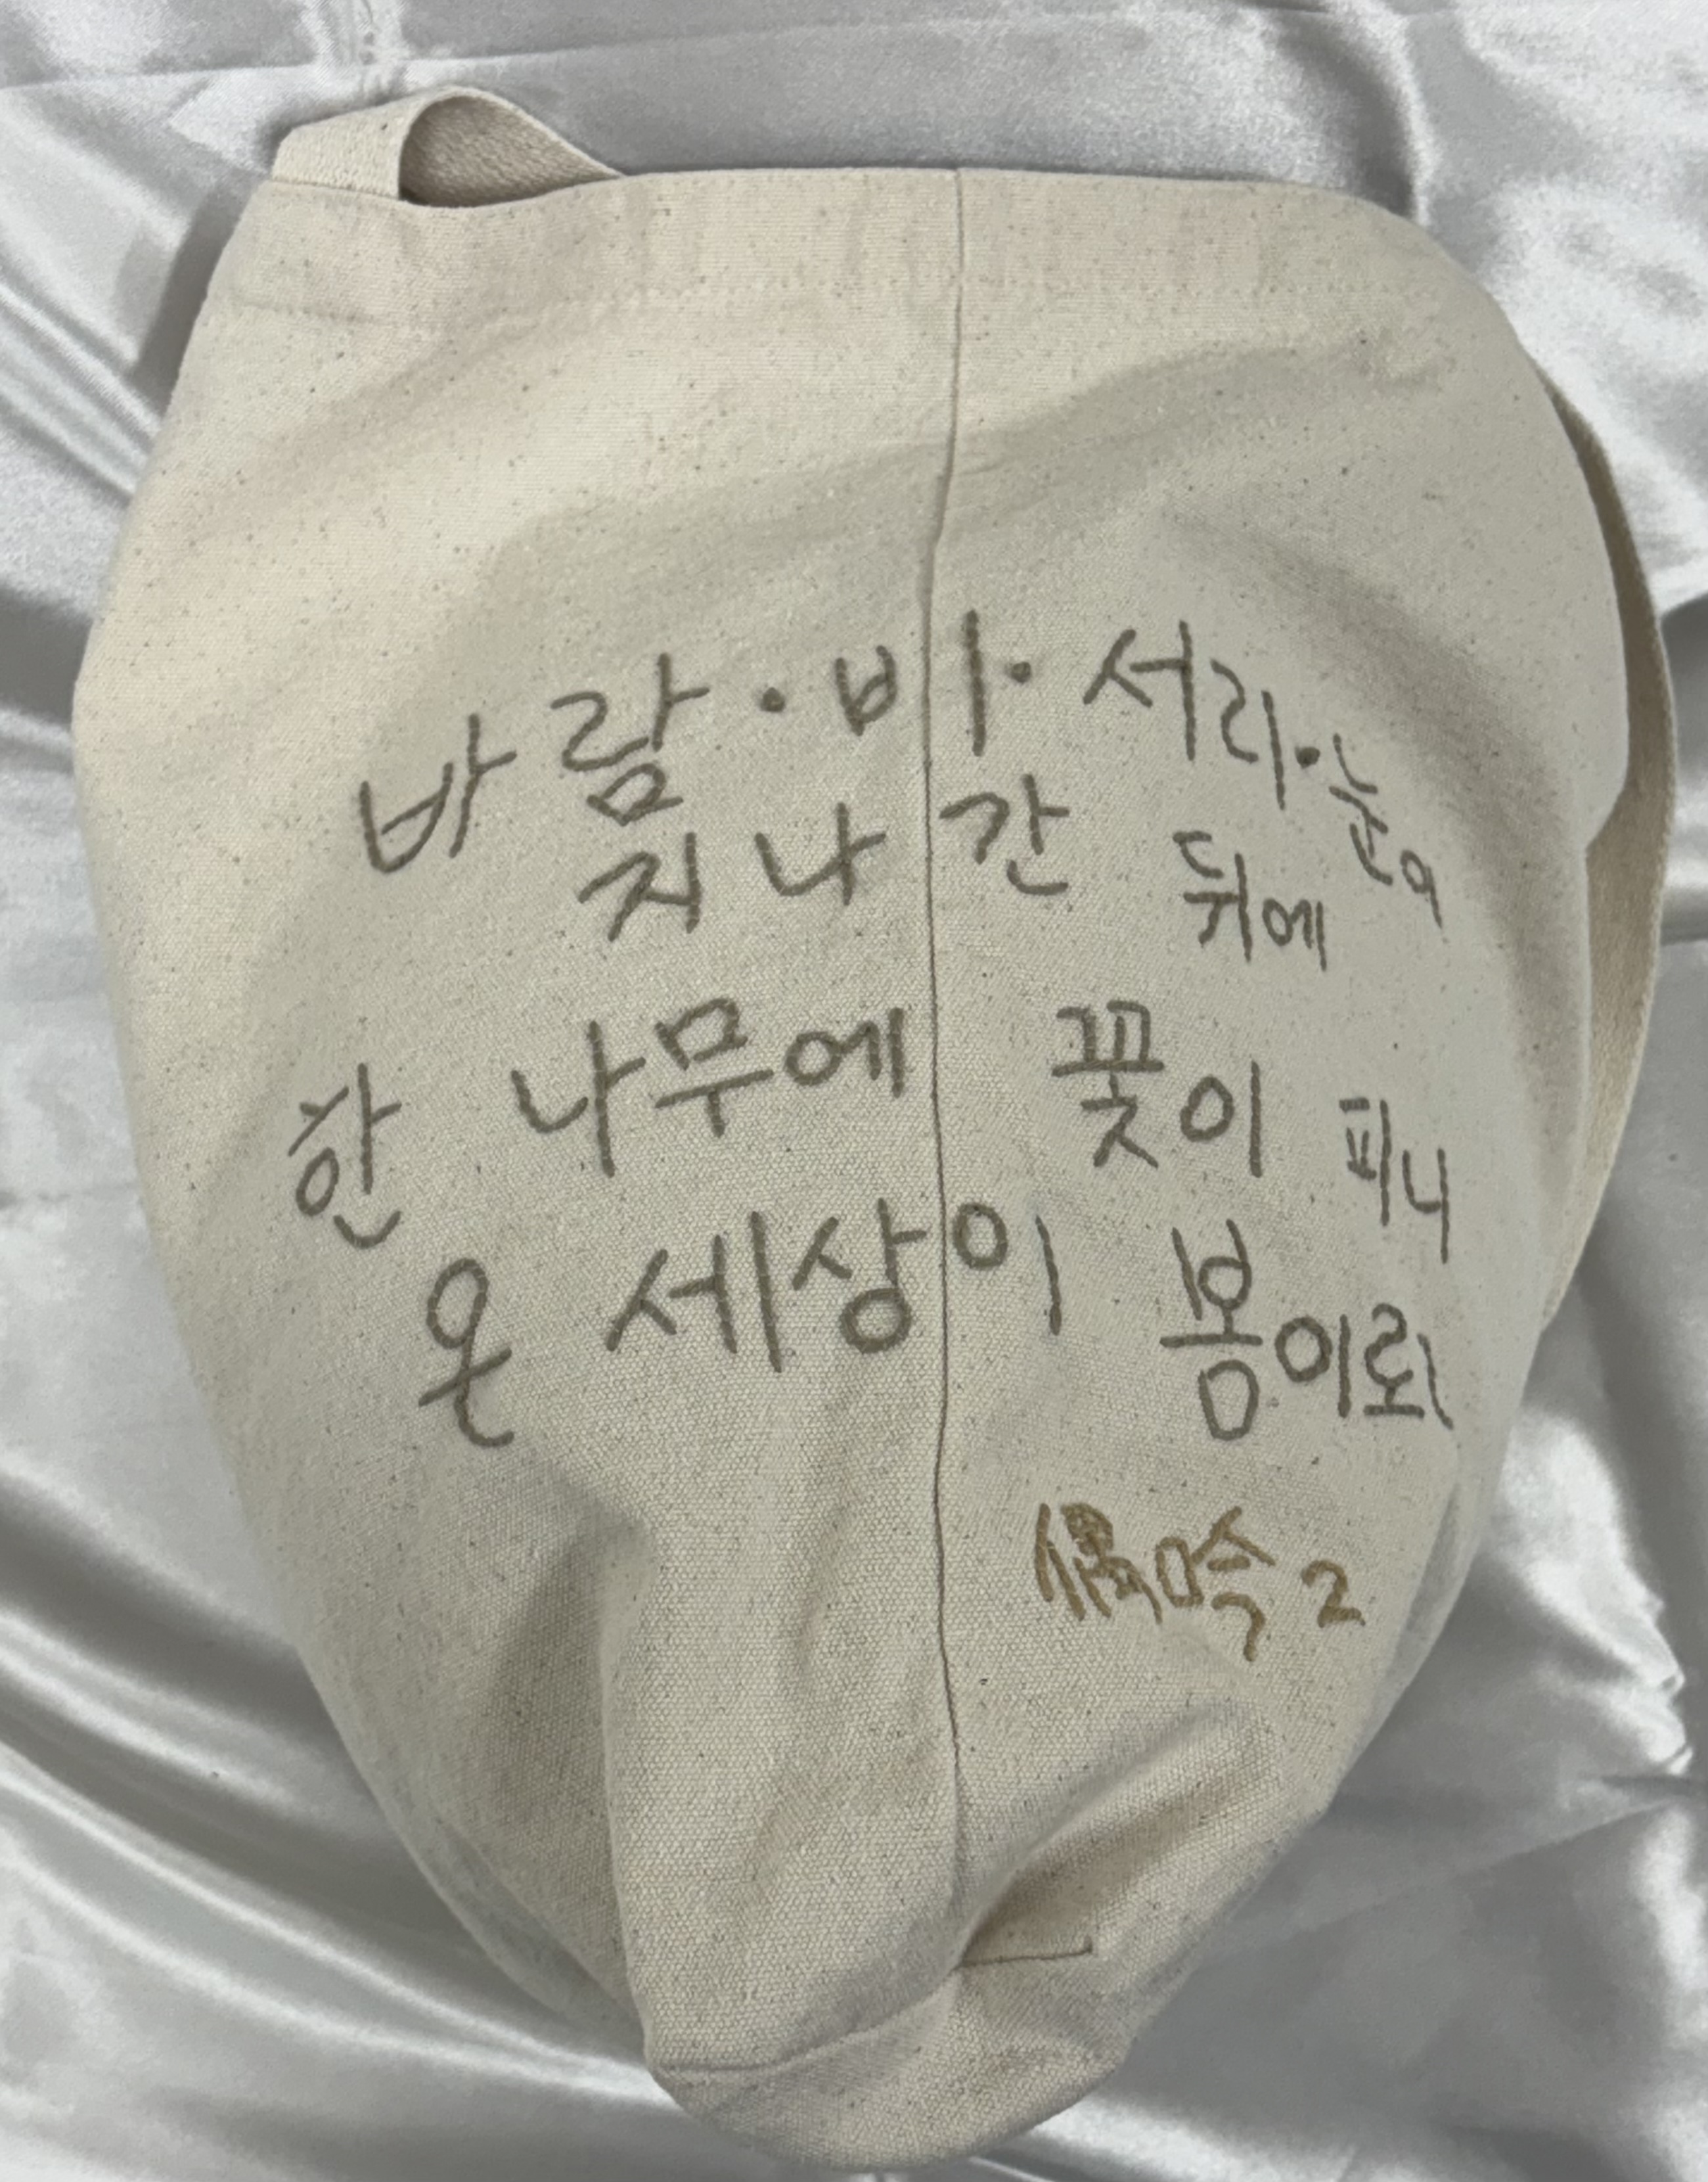 바람·비·서리·눈이
지나간 뒤에
한 나무에 꽃이 피니
온 세상이 봄이뢰
偶吟 2